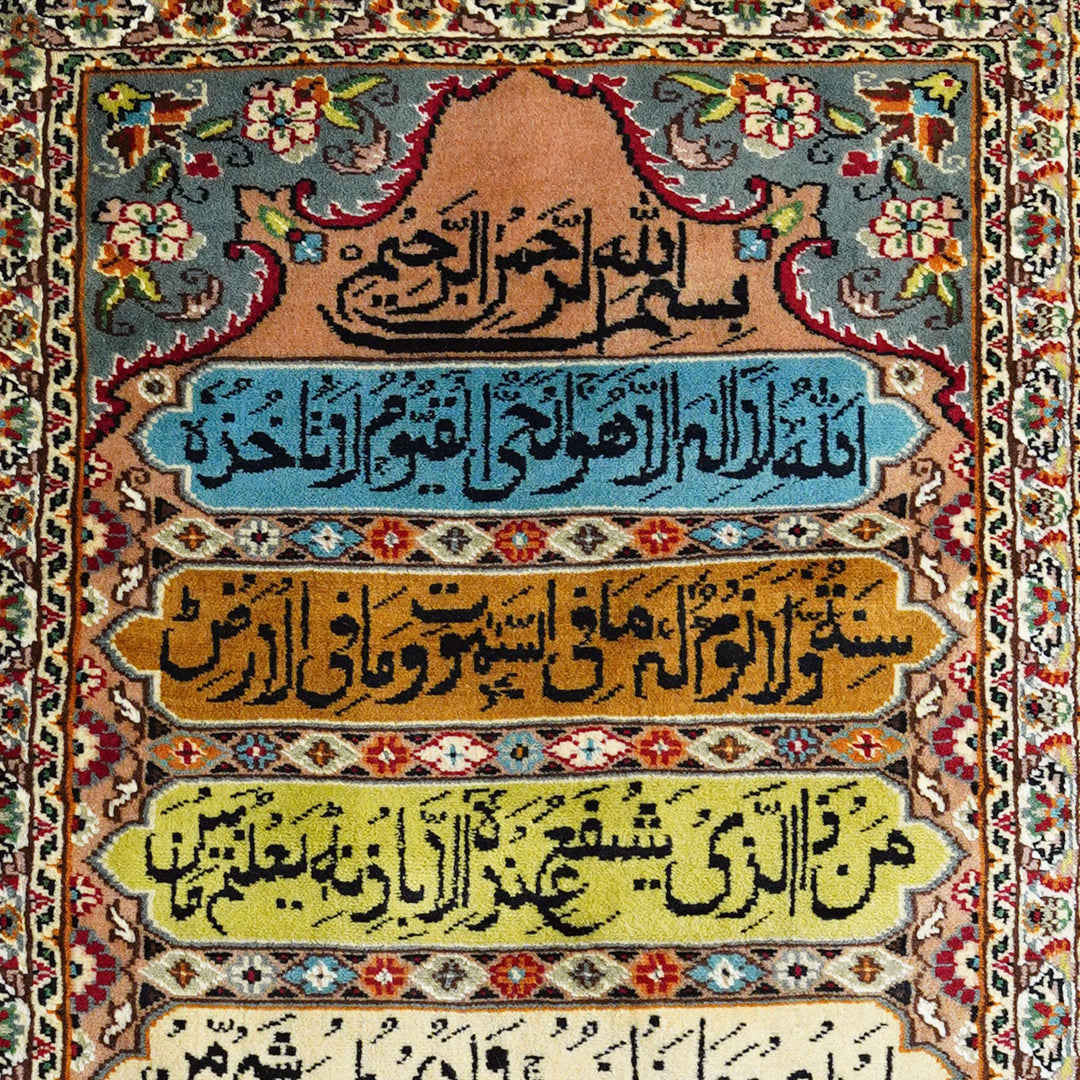 بسم الله الرحمن الرحيم
الله لا اله الا هو الحي القيوم لا تاخذه
سنة ولا نوم له ما في السموت وما في الارض
من ذا الذي يشفع عنده الا باذنه يعلم ما بين